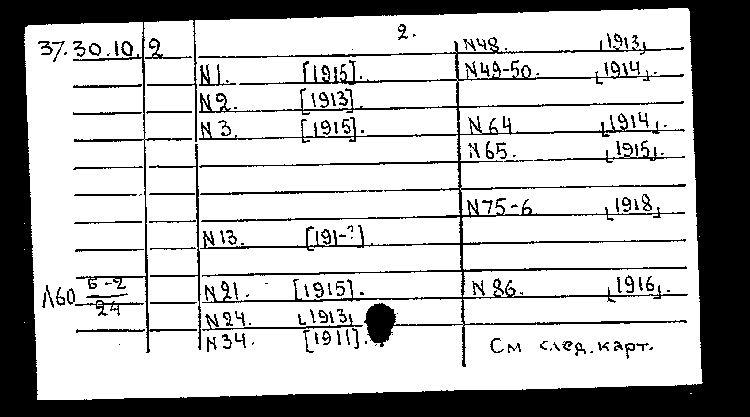 2.
37.30.10.2
N1. [1915].
N2. [1913].
N3. [1915].
N13. [191-?].
Л60 Б-2
24
N21. [1915].
N24. [1913]
N34. [1911].
N48. [1913]
N49-50. [1914].
N64 [1914].
N65. [1915].
N75-6. [1918]
N86. [1916].
См след. карт.